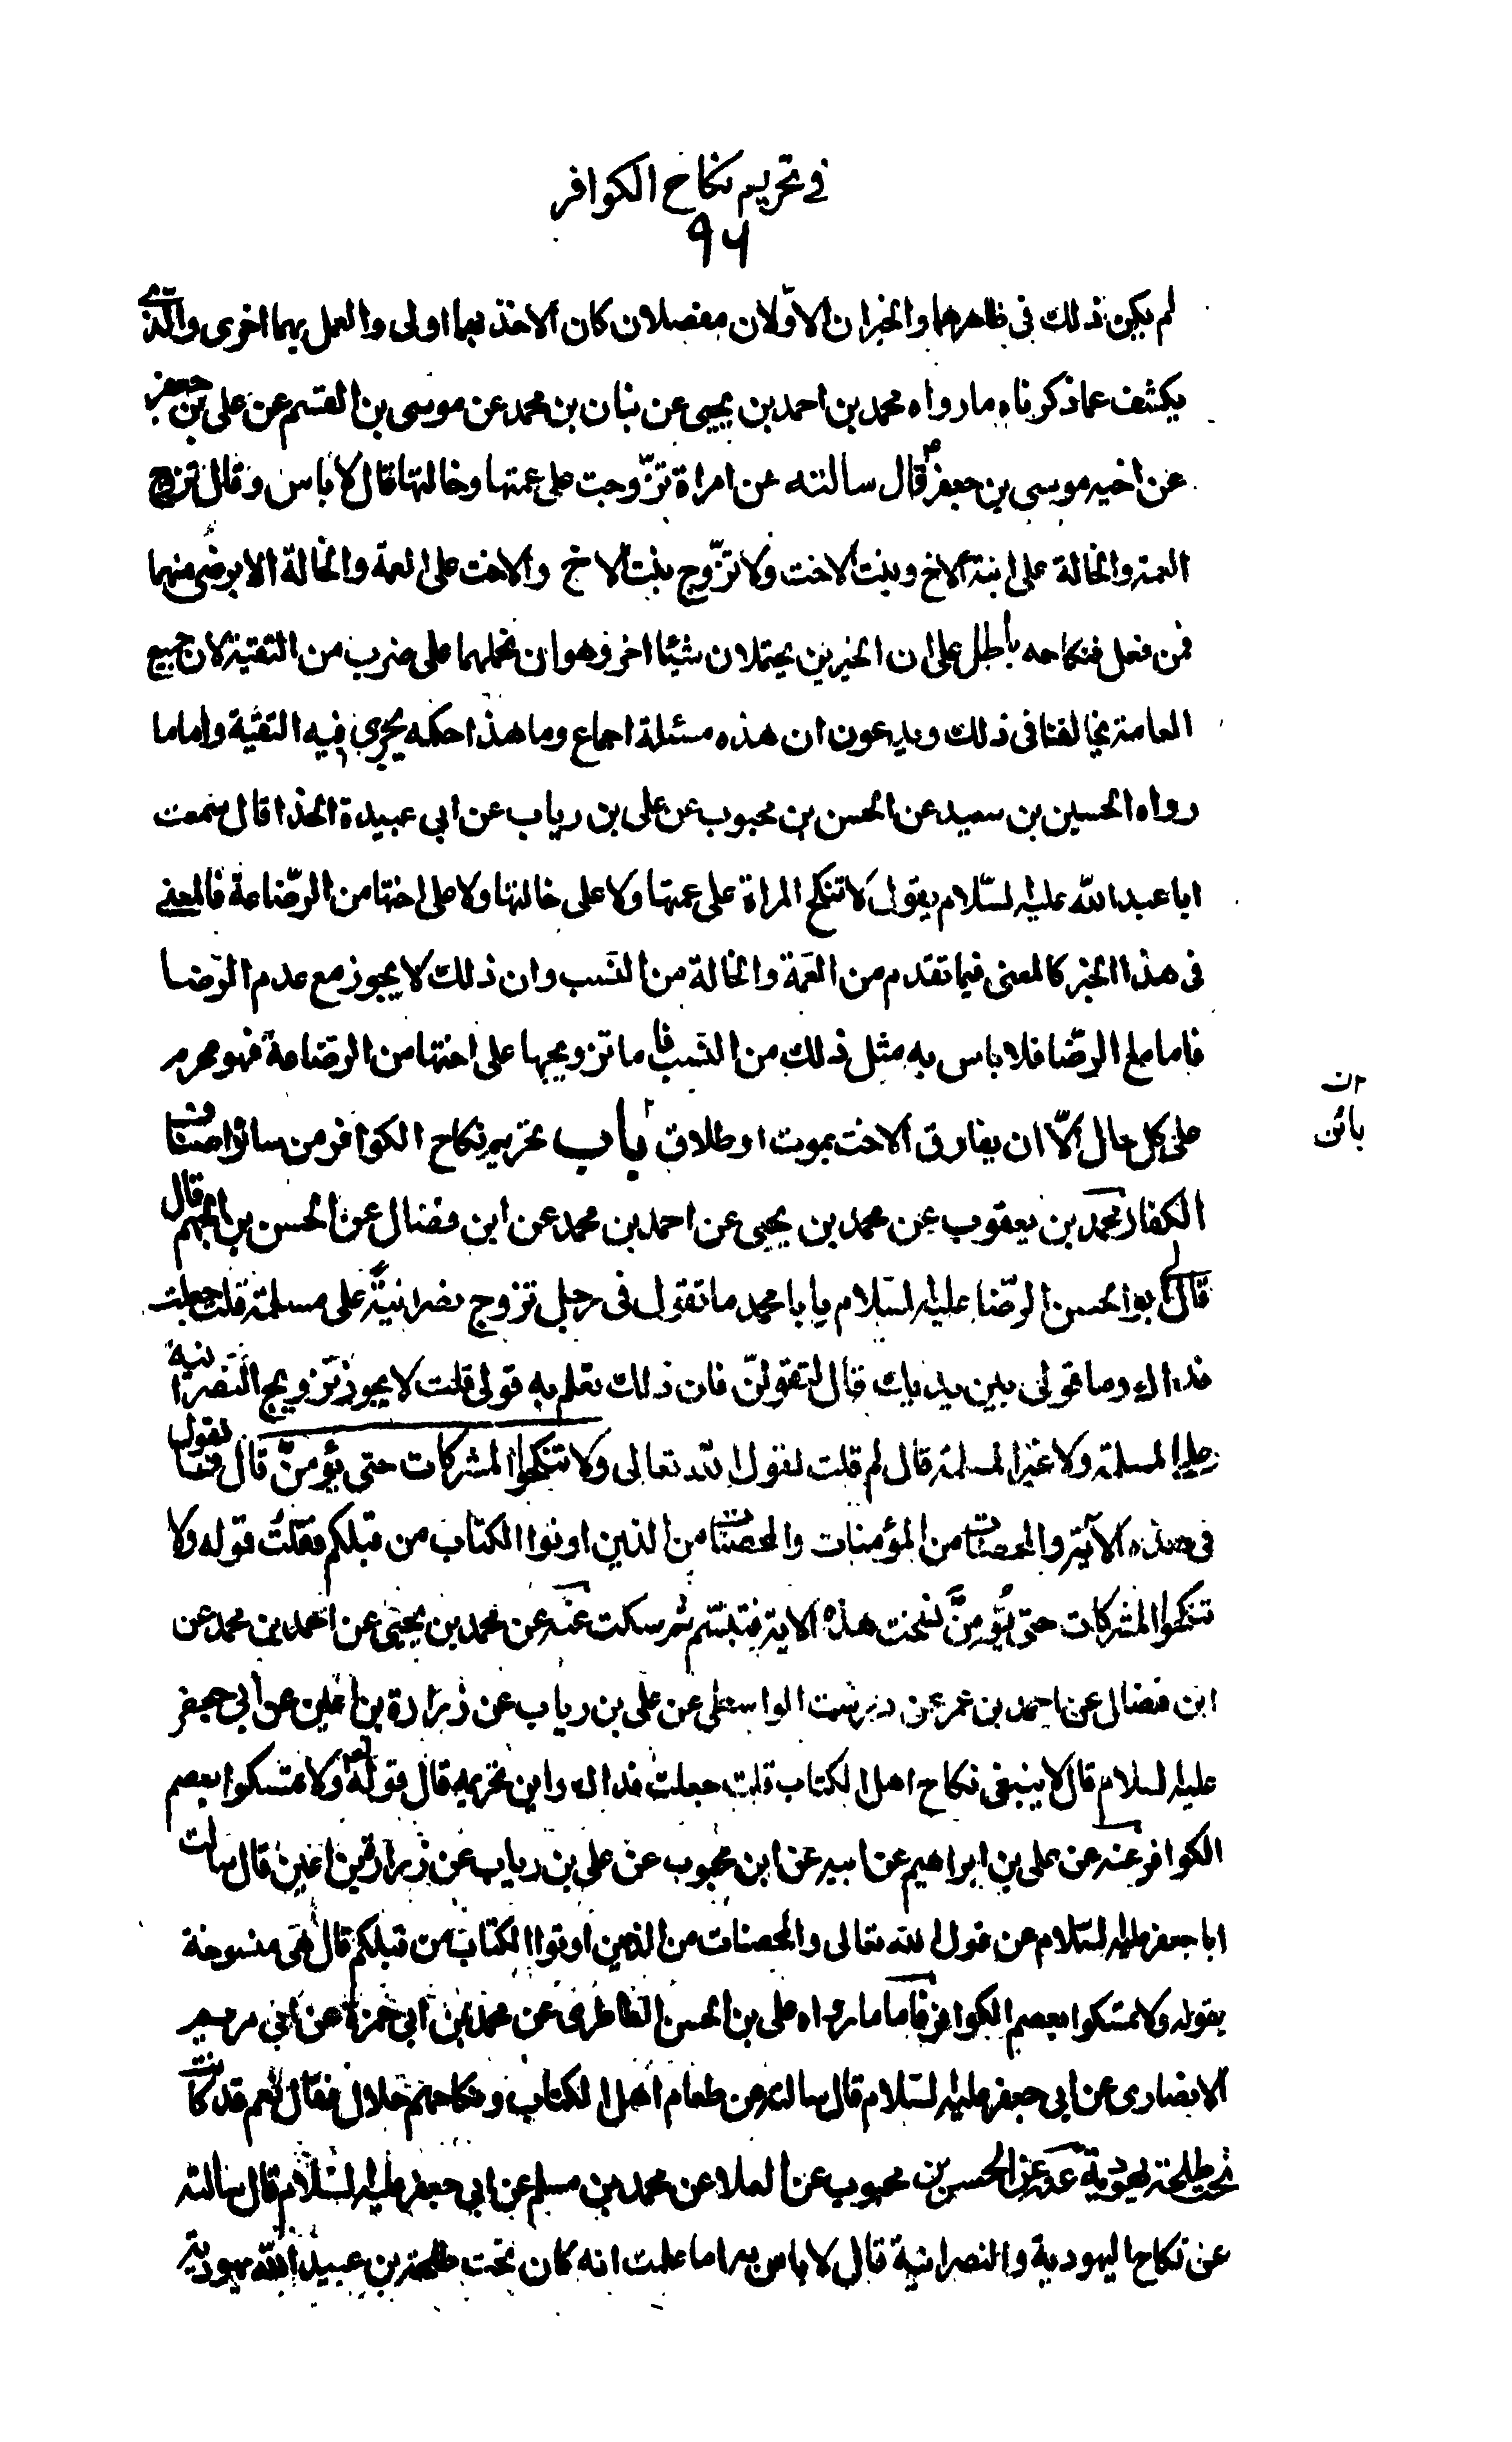 في تحريم نكاح الكوافر
٩٦
لم يكن ذلك في ظاهرهما والخبران الاوّلان مفصلان كان الاخذ بهما اولى والعمل بهما احرى والّذى
يكشف عما ذكرناه ما رواه محمد بن احمد بن يحيى عن بنان بن محمد عن موسى بن القسم عن على بن جعفر
عن اخيه موسى بن جعفر ع قال سالته عن امراة تزّوجت على عمتها وخالتها قال لا باس وقال تزوج
العمة والخالة على ابنة الاخ وبنت الاخت ولا تزّوج بنت الاخ والاخت على العمة والخالة الا برضى منهما
فمن فعل فنكاحه باطل على ان الخبرين يحتملان شيئا اخر وهو ان نحملهما على ضرب من التقية لان جميع
العامة تخالفنا في ذلك ويدعون ان هذه مسئلة اجماع وما هذا حكمه يجرى فيه التقية واما ما
رواه الحسين بن سعيد عن الحسن بن محبوب عن على بن رياب عن ابي عبيدة الحذا قال سمعت
ابا عبد الله عليه السّلام يقول لا تنكح المراة على عمتها ولا على خالتها ولا على اختها من الرّضاعة فالمعنى
في هذا الخبر كالمعنى فيما تقدم من العَمة والخالة من النَسب وان ذلك لا يجوز مع عدم الرّضا
فاما مع الرضّا فلا باس به مثل ذلك من النسب فاما تزويجها على اختها من الرضّاعة فهو محرم
على كل حال الّا ان يفارق الاخت بموت او طلاق باب تحريم نكاح الكوافر من سائر اصناف
ان
بائن
الكفار محمد بن يعقوب عن محمد بن يحيى عن احمد بن محمد عن ابن فضال عن الحسن بن الجهم قال
قال لى ابو الحسن الرضّا عليه السّلام يا با محمد ما تقول في رجل تزوج نصرانيّة على مسلمة قلت جعلت
فداك وما قولى بين يديك قال لتقولنّ فان ذلك تعلم به قولى قلت لا يجوز تزويج النّصرانية
على المسلمة ولا غير المسلمة قال لم قلت لقول الله تعالى ولا تنكحوا المشركات حتى يؤمنّ قال فما تقول
في هذه الآية والمحصنات من المؤمنات والمحصنات من الذين اوتوا الكتاب من قبلكم فقلت قوله ولا
تنكحوا المشركات حتى يُؤمِنَّ نسخت هذه الاية فتبسّم ثم سكت عنه عن محمد بن يحيى عن احمد بن محمد عن
ابن فضال عن احمد بن عمر عن درست الواسطى عن على بن رياب عن زرارة بن اعين عن ابي جعفر
عليه السلام قال لا ينبغى نكاح اهل الكتاب قلت جعلت فداك واين تحريمه قال قوله تعـ ولا تمسكوا بعصم
الكوافر عنه عن على بن ابراهيم عن ابيه عن ابن محبوب عن على بن رياب عن زرارة بن اعين قال سالت
ابا جعفر عليه السّلام عن قول الله تعالى والمحصنات من الذين اوتوا الكتاب من قبلكم قال هى منسوخة
بقوله ولا تمسكوا بعصم الكوافر فاما ما رواه على بن الحسن الطاطرى عن محمد بن ابى حمزة عن ابي مريم
الانصارى عن ابى جعفر عليه السّلام قال سالته عن طعام اهل الكتاب ونكاحهم حلال فقال نعم قد كانت
تحت طلحة يهودية عنه عن الحسن بن محبوب عن العلا عن محمد بن مسلم عن ابي جعفر عليه السّلام قال سالته
عن نكاح اليهودية والنصرانية قال لا باس به اما علمت انه كان تحت طلحة بن عبيد الله يهودية